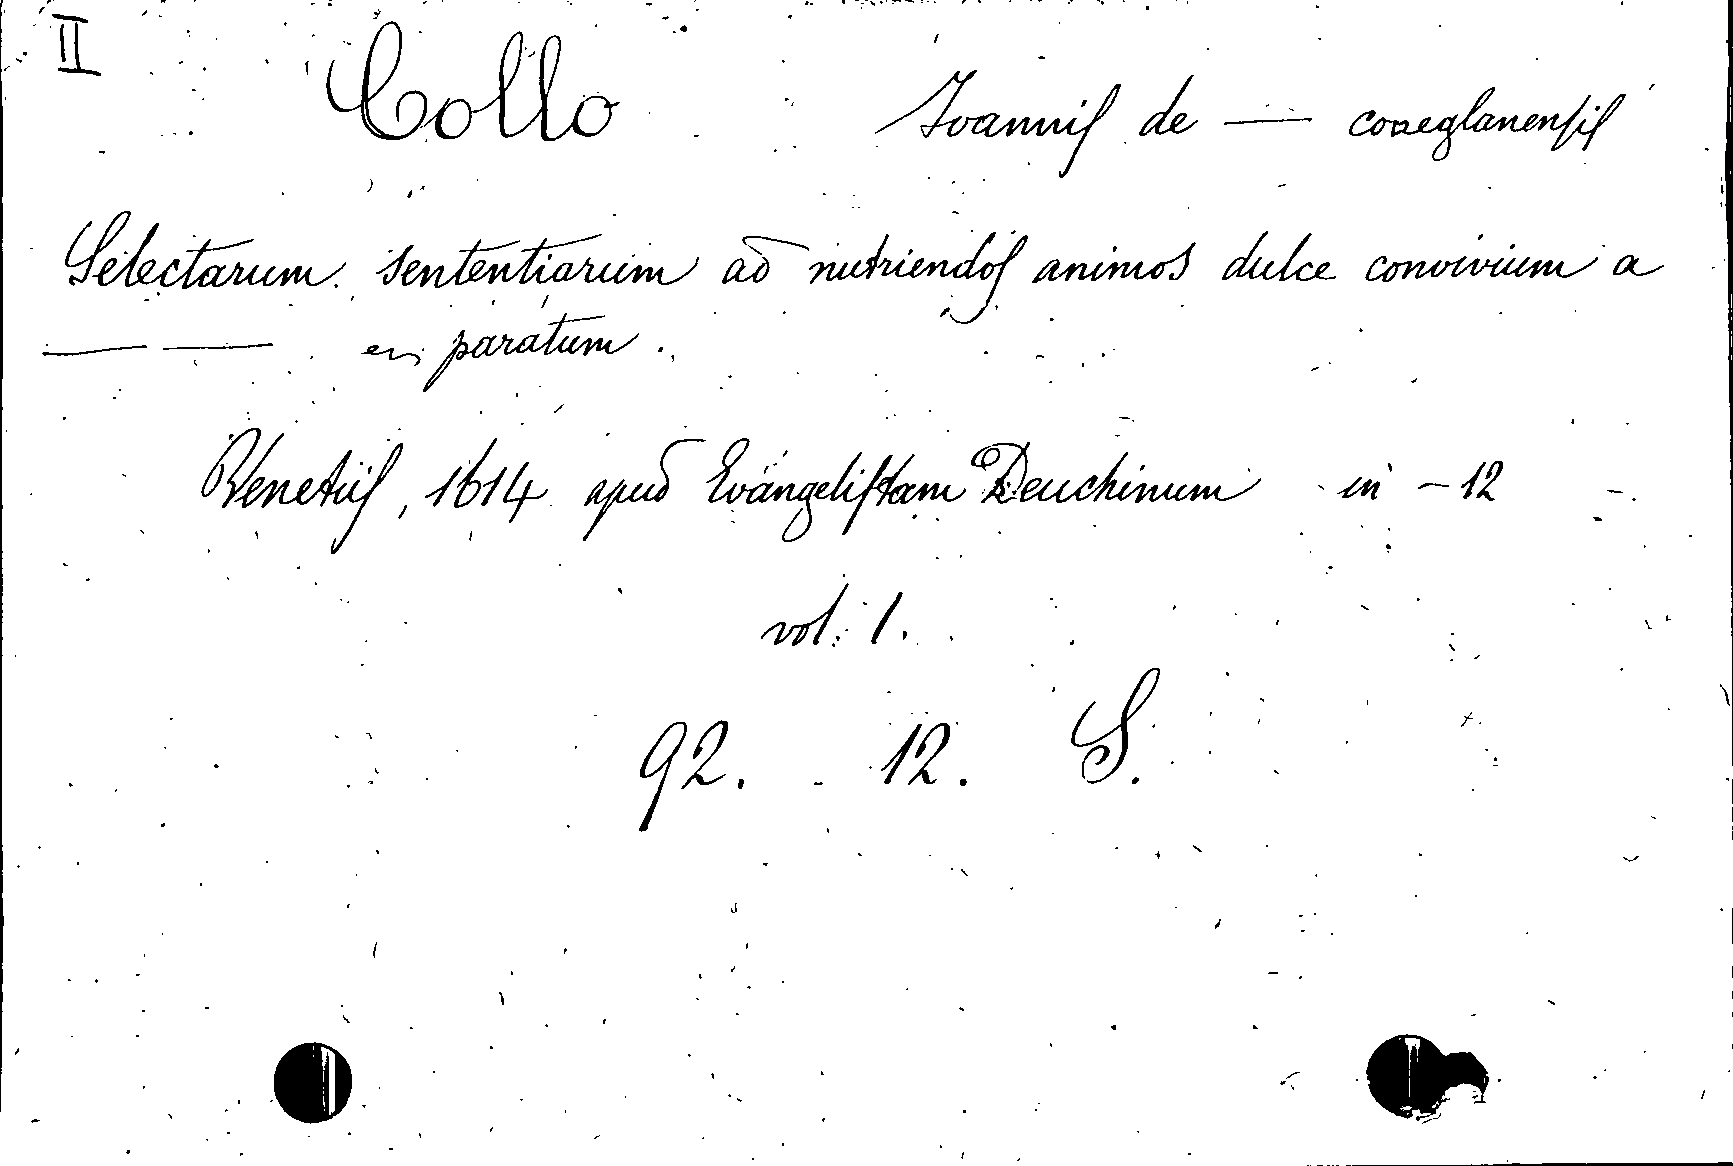 II
Collo Ioannis de — coneglanensis
Selectarum sententiarum ad nutriendos animos dulce convivium a
— — paratum.
Venetiis, 1614 apud Evangelistam Deuchinum in - 12
vol. 1.
92. 12. S.